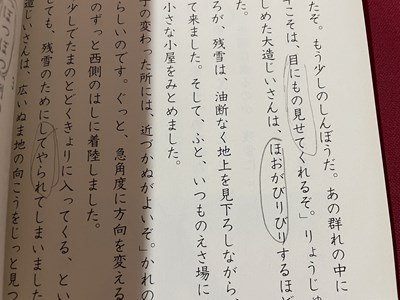 たぞ。もう少しのしんぼうだ。あの群れの中に
こそは、目にもの見せてくれるぞ。」りょうじゅ
しめた大造じいさんは、ほおがびりびりするほど
た。
ろが、残雪は、油断なく地上を見下ろしながら、
て来ました。そして、ふと、いつものえさ場に
小さな小屋をみとめました。
子の変わった所には、近づかぬがよいぞ」かれの
らしいのです。ぐっと、急角度に方向を変える
のずっと西側のはしに着陸しました。
少しでたまのとどくきょりに入ってくる、とい
ても、残雪のためにしてやられてしまいました
造じいさんは、広いぬま地の向こうをじっと見つ